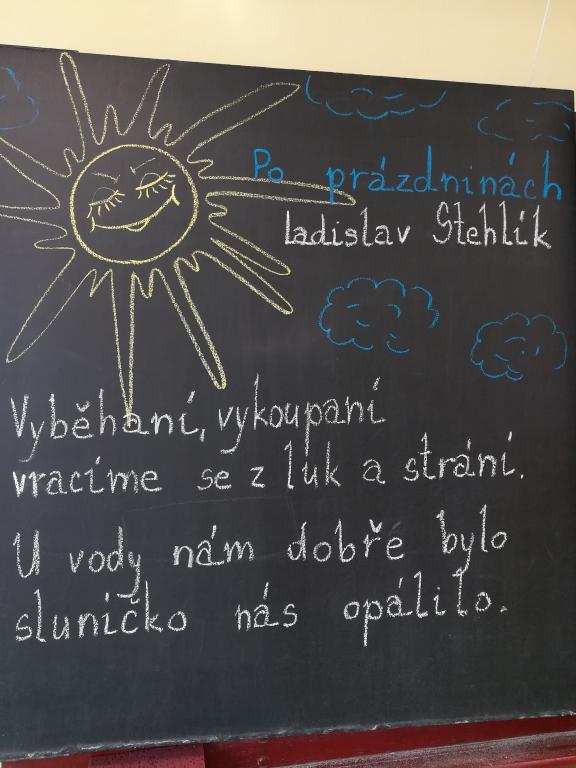 Po prázdninách
Ladislav Stehlík
Vyběhaní, vykoupaní
vracíme se z luk a strání.
U vody nám dobře bylo
sluníčko nás opálilo.